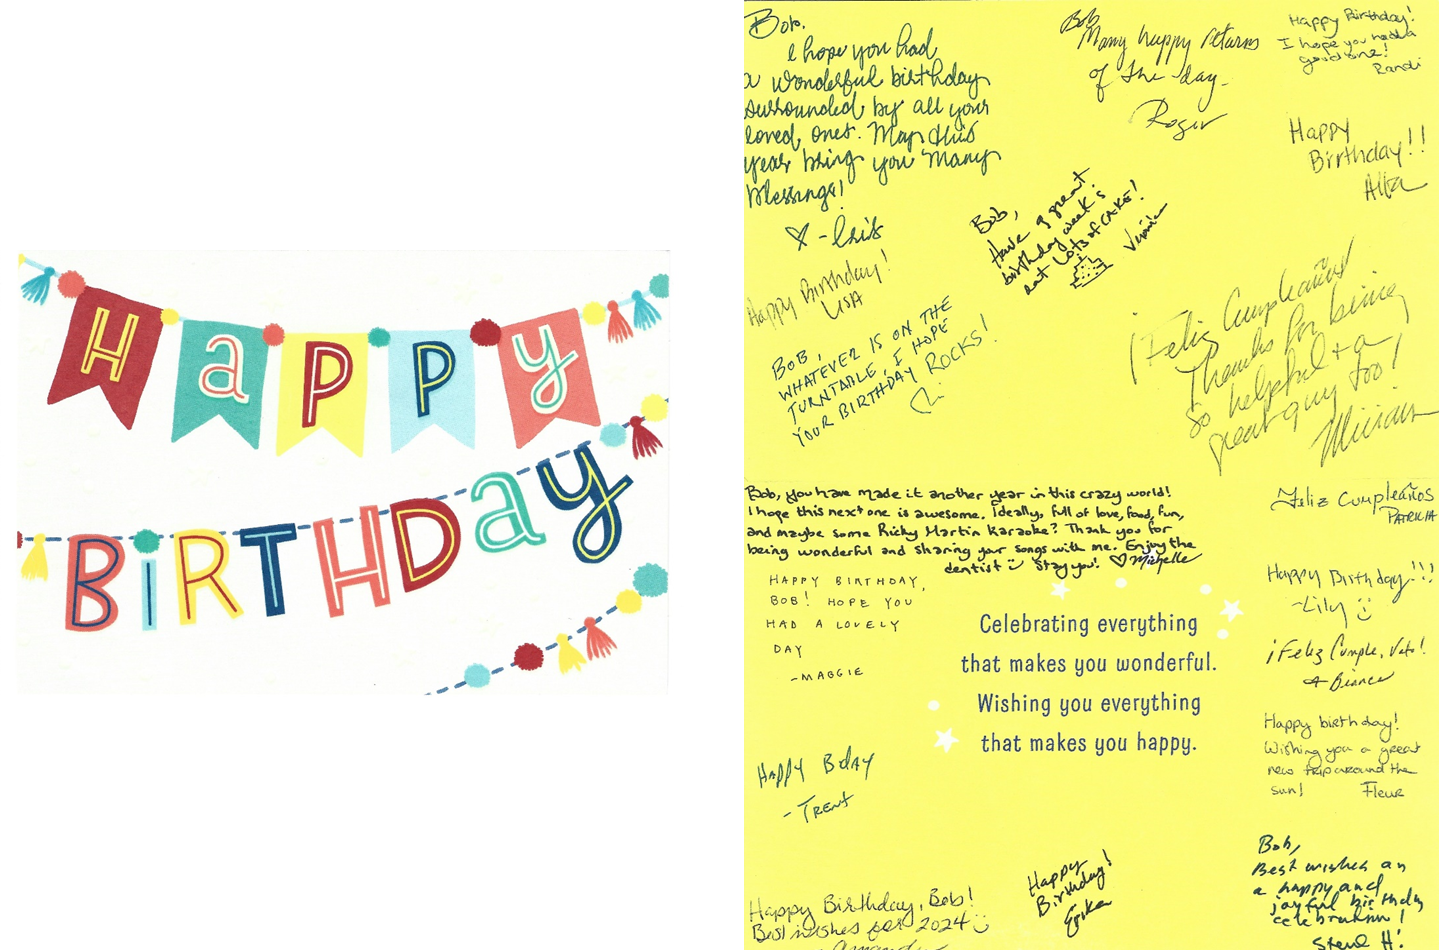 Happy
BIRTHDay
Bob,
I hope you had
a wonderful birthday
surrounded by all your
loved ones. May this
year bring you many
blessings!
♡ - Iris
Bob,
Many happy returns
of the day-
Roger
Happy Birthday!
I hope you had a
good one!
Randi
Happy
Birthday!!
Bob,
Have a great
birthday week &
eat lots of CAKE!
Happy Birthday!
LISA
BOB,
WHATEVER IS ON THE
TURNTABLE, I HOPE
YOUR BIRTHDAY ROCKS!
¡Feliz Cumpleaños!
Thanks for being
so helpful + a
great guy too!
Miriam
Bob, you have made it another year in this crazy world!
I hope this next one is awesome. Ideally, full of love, food, fun,
and maybe some Ricky Martin karaoke? Thank you for
being wonderful and sharing your songs with me. Enjoy the
dentist :) Stay you! ♡ Michelle
Feliz Cumpleaños
PATRICIA
HAPPY BIRTHDAY,
BOB! HOPE YOU
HAD A LOVELY
DAY
-MAGGIE
Celebrating everything
that makes you wonderful.
Wishing you everything
that makes you happy.
Happy Birthday!!!
-Lily :)
¡Feliz Cumple, Veto!
Bianca
Happy birthday!
Wishing you a great
new trip around the
sun! Fleur
HAPPY BDAY
- TRENT
Happy
Birthday!
Erika
Happy Birthday, Bob!
Best wishes for 2024 :)
Amanda
Bob,
Best wishes on
a happy and
joyful birthday
celebration!
Steve H!